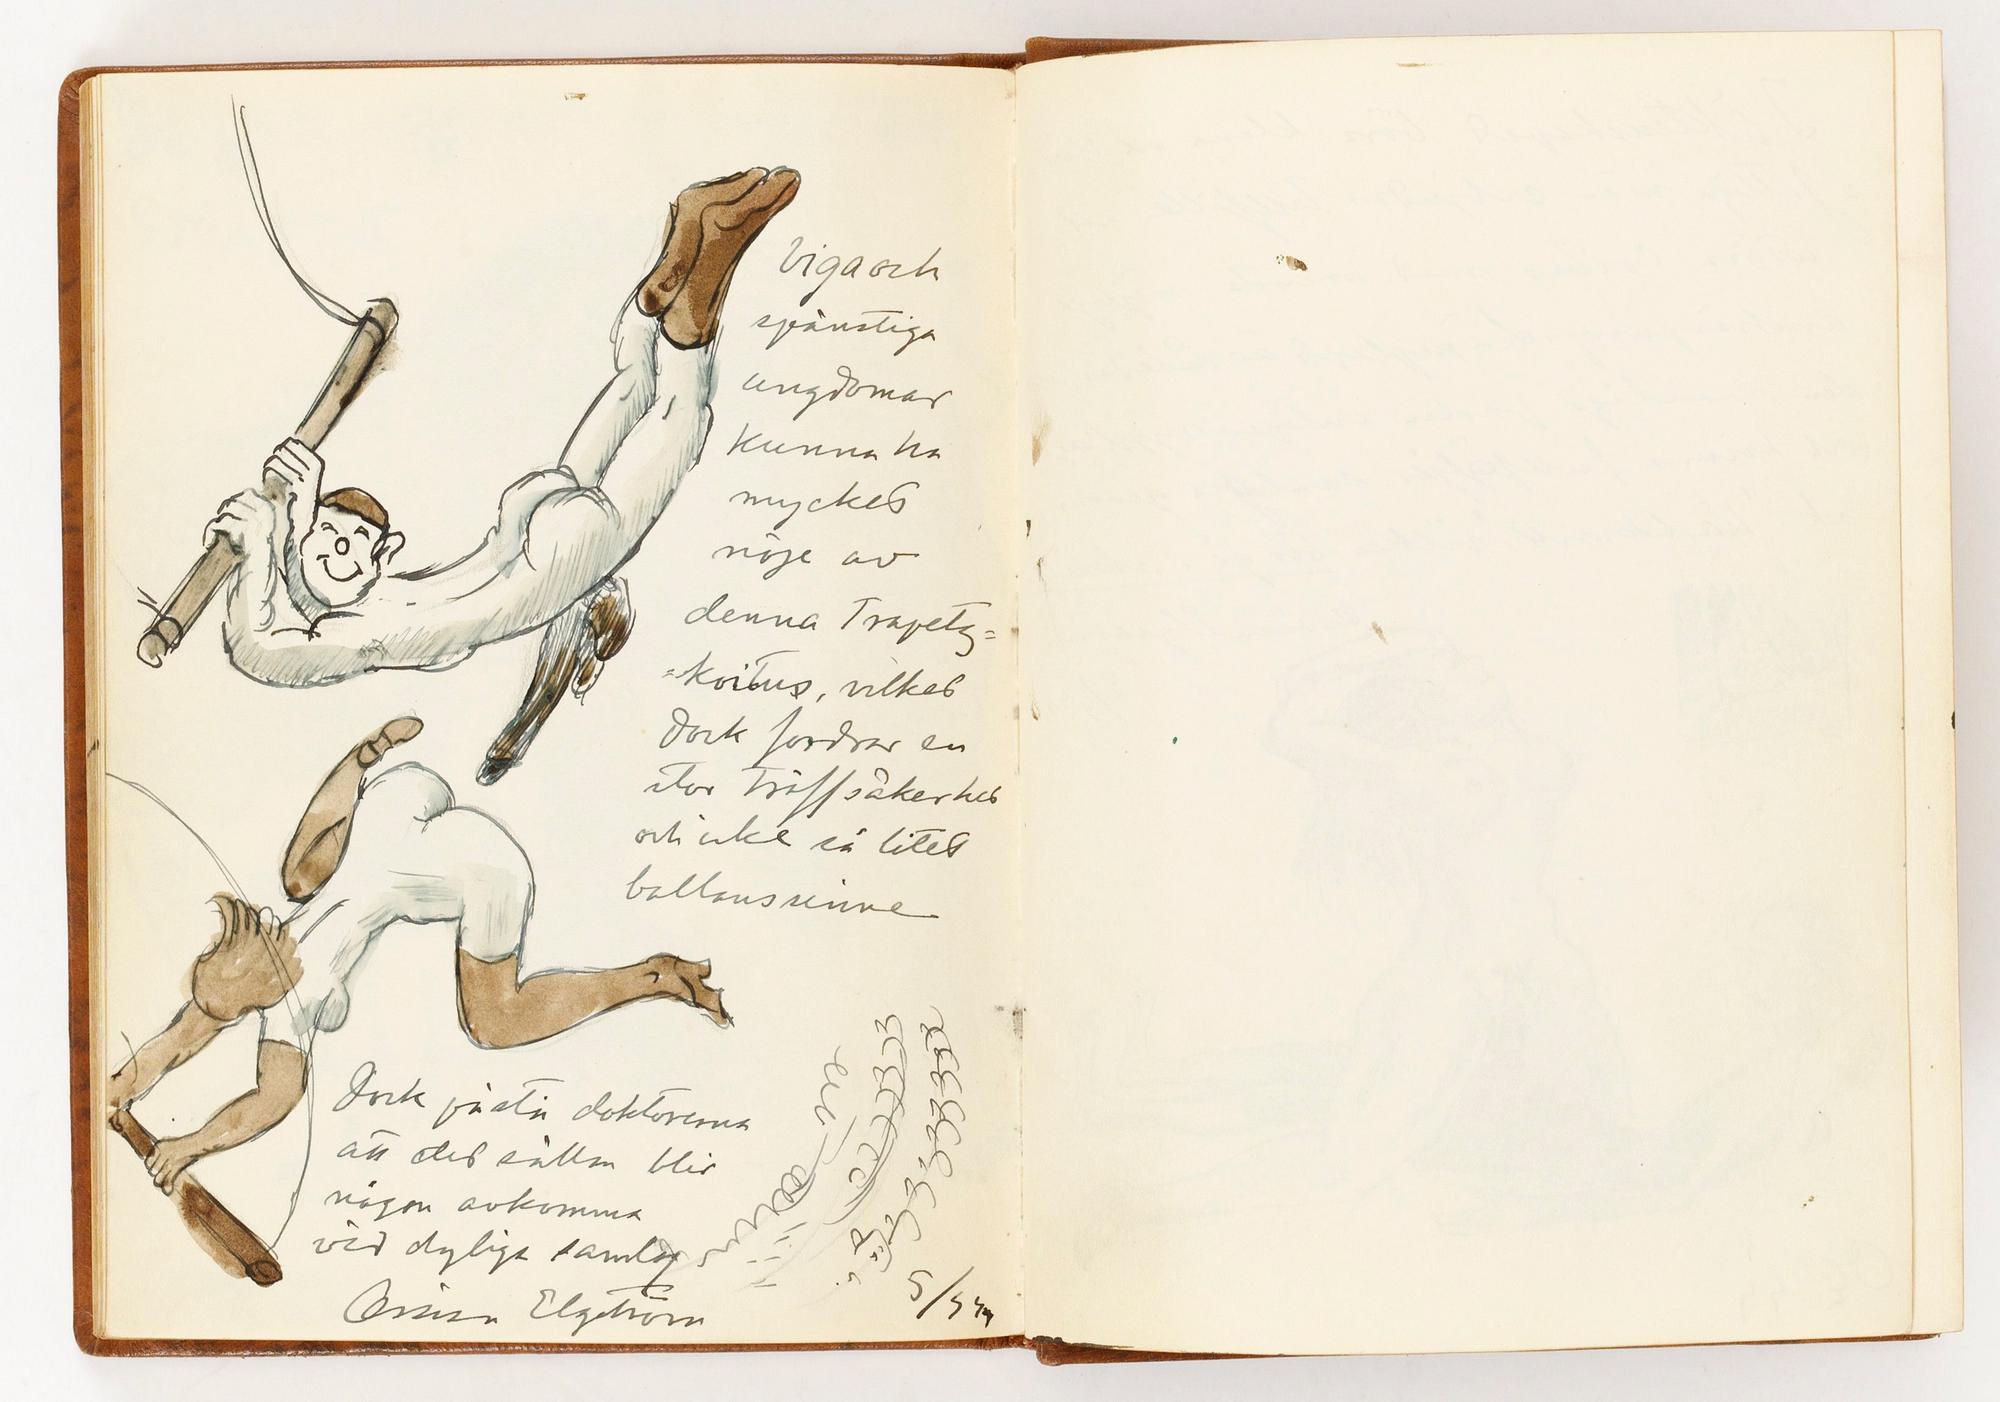 Viga och
spänstiga
ungdomar
kunna ha
mycket
nöje av
denna Trapetz=
=koitus, vilket
dock fordrar en
stor träffsäkerhet
och icke så litet
ballanssinne
Dock påstå doktorerna
att det sällan blir
någon avkomma
vid dyliga samlag
Ossian Elgström